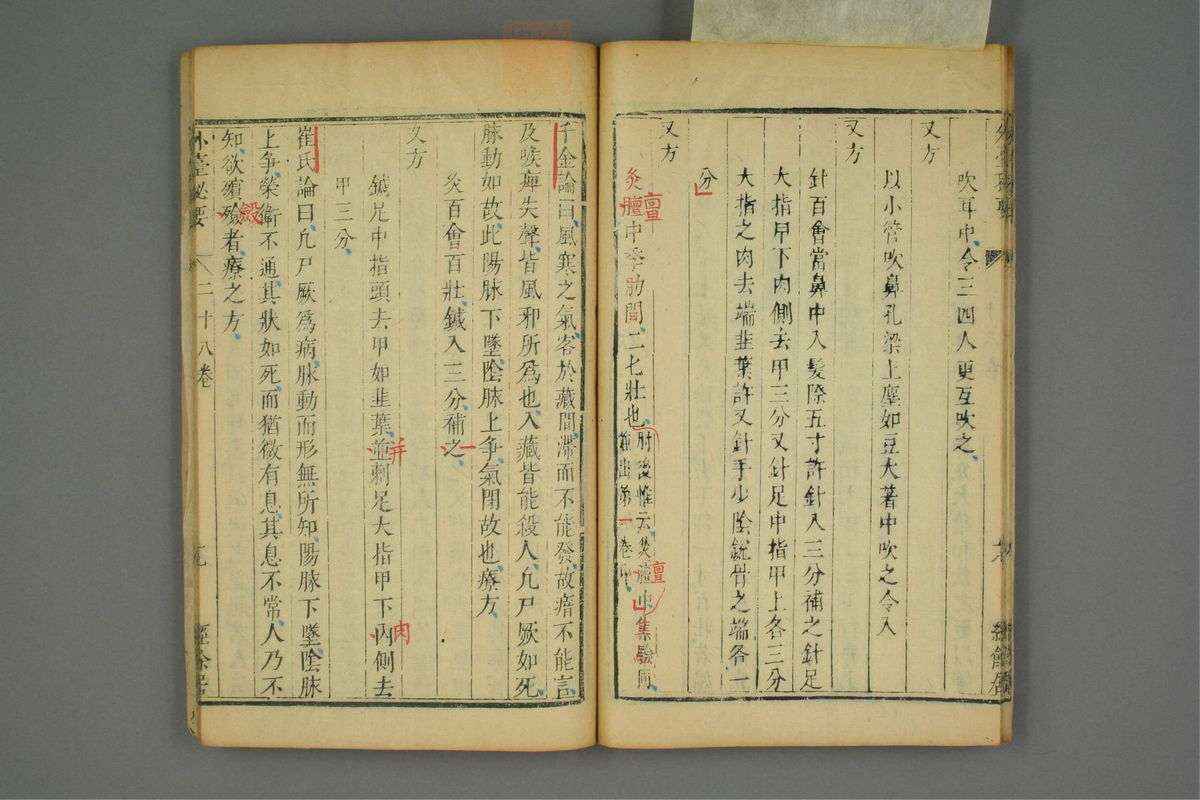 吹耳中令三四人更互吹之
又方
以小管吹鼻孔梁上塵如豆大著中吹之令入
又方
針百會當鼻中入髮際五寸許針入三分補之針足
大指甲下肉側去甲三分又針足中指甲上各三分
大指之肉去端韭葉許又針手少陰銳骨之端各一
分
又方
灸膻中季肋間二七壯也肘後惟云灸膻中集驗同
並出第一卷中
膻
膻
千金論曰風寒之氣客於藏間滯而不能發故瘖不能言
及喉痺失聲皆風邪所爲也入藏皆能殺人凡尸厥如死
脉動如故此陽脉下墜陰脉上爭氣閉故也療方
灸百會百壯鍼入三分補之
又方
鍼足中指頭去甲如韭葉並刺足大指甲下內側去
并
肉
甲三分
崔氏論曰凡尸厥爲病脉動而形無所知陽脉下墜陰脉
上爭榮衛不通其狀如死而猶微有息其息不常人乃不
知欲殯殮者療之方
殮
外臺秘要
二十八卷
經餘居